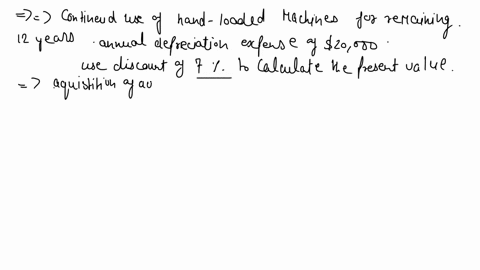 => => Continend use of hand-loaded Machines for remaining.
12 years . annual depreciation expense of $20,000 .
use discount of 7 %. to Calculate the present value.
=> aquistition of ao